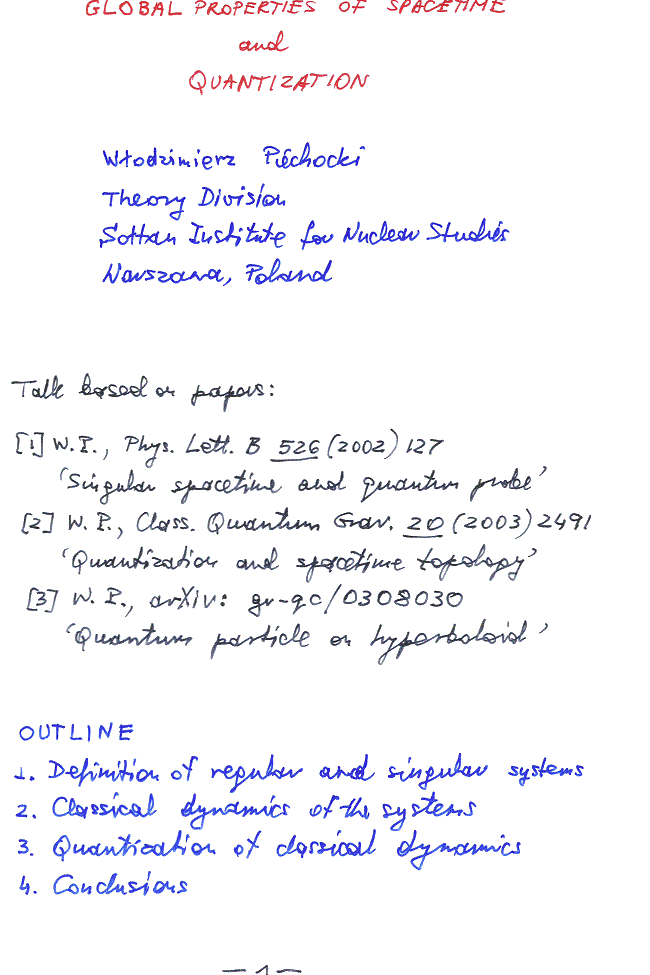 GLOBAL PROPERTIES OF SPACETIME
and
QUANTIZATION
Włodzimierz Piechocki
Theory Division
Sołtan Institute for Nuclear Studies
Warszawa, Poland
Talk based on papers:
[1] W.P., Phys. Lett. B 526 (2002) 127
'Singular spacetime and quantum probe'
[2] W.P., Class. Quantum Grav. 20 (2003) 2491
'Quantization and spacetime topology'
[3] W.P., arXiv: gr-qc/0308030
'Quantum particle on hyperboloid'
OUTLINE
1. Definition of regular and singular systems
2. Classical dynamics of the systems
3. Quantization of classical dynamics
4. Conclusions
— 1 —